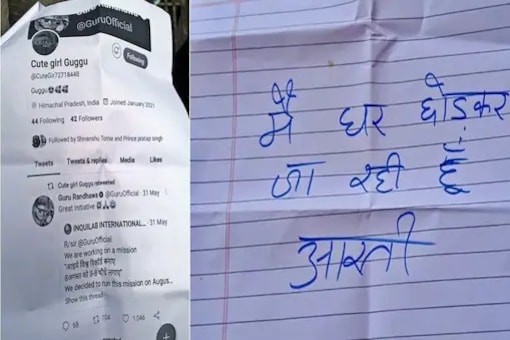 @GuruOfficial
Cute girl Guggu
@CuteGirl72718440
Following
Himachal Pradesh, India Joined January 2021
44 Following 42 Followers
Followed by Shivanshu Tome and Prince pratap singh
Tweets Tweets & replies Media Likes
Cute girl Guggu retweeted
Guru Randhawa @GuruOfficial · 31 May
Great initiative
INQUILAB INTERNATIONAL... · 31 May
R/sir @GuruOfficial
We are working on a mission
We decided to run this mission on Augus...
Show this thread
68 104 1,046
मै घर छोडकर
जा रही हूं
आरती